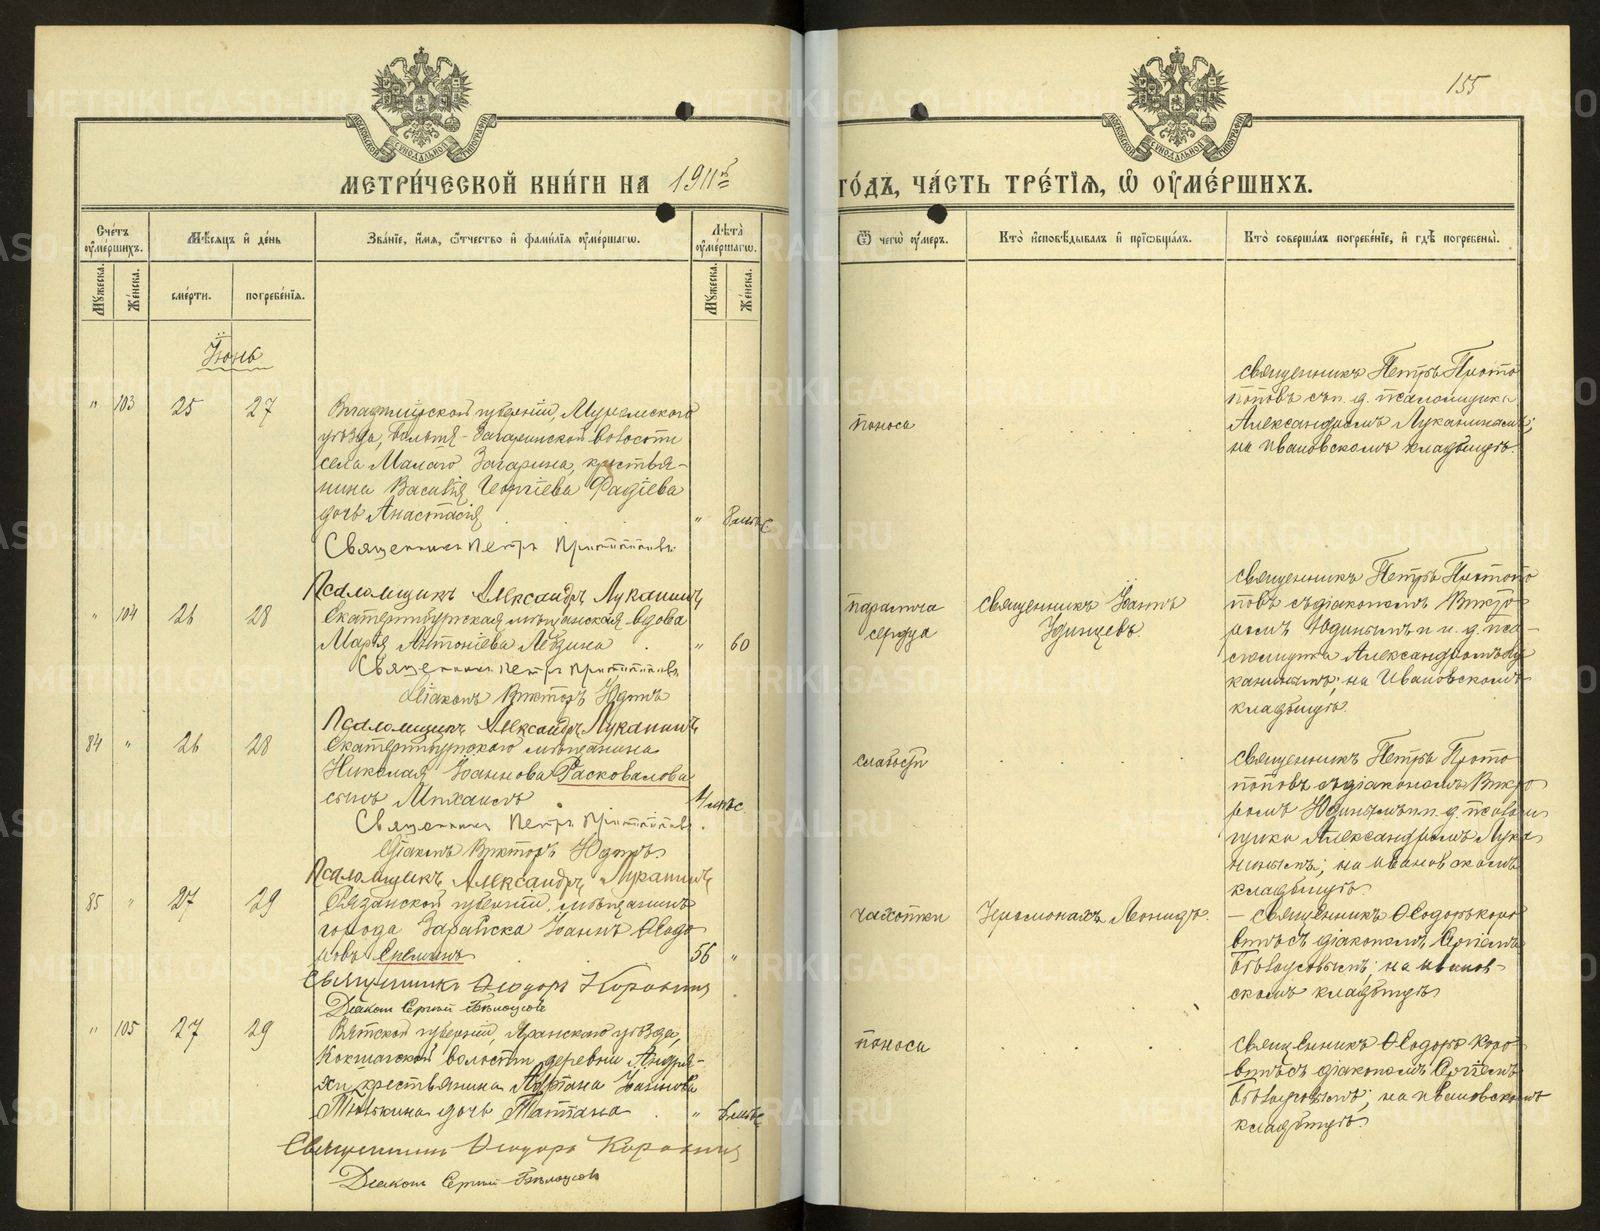 155
МЕТРИ́ЧЕСКОЙ КНИ́ГИ НА 1911й
ГО́ДЪ, ЧА́СТЬ ТРЕ́ТІЯ, Ѡ ОУМЕ́РШИХЪ.
Сче́тъ оуме́ршихъ.
Мѣ́сяцъ и де́нь
Зва́ніе, и́мя, ѻ́тчество и фами́лія оуме́ршагѡ.
Лѣ́та оуме́ршагѡ.
Ѿ чегѡ̀ оу́меръ.
Кто̀ исповѣ́дывалъ и пріѡбща́лъ.
Кто̀ соверша́лъ погребе́ніе, и гдѣ̀ погребены̀.
Му́жеска.
Же́нска.
сме́рти.
погребе́нія.
Му́жеска.
Же́нска.
Іюнь
" 103 25 27
Владимірской губерніи, Муромскаго
уѣзда, волости
села Малаго Загарина, крестья-
нина Василія Георгіева Фадіева
дочь Анастасія " 8 мѣс
Священникъ Петръ Протопоповъ
поноса
священникъ Петръ Прото
поповъ съ и. д. псаломщика
Александромъ Луканинымъ;
на Ивановскомъ кладбищѣ.
Псаломщикъ Александръ Луканинъ
" 104 26 28
Екатеринбургская мѣщанская вдова
Марія Антоніева " 60
Священникъ Петръ Протопоповъ
Діаконъ Викторъ Юдинъ
паралича
сердца
священникъ Іоаннъ
Удинцевъ.
священникъ Петръ Протопо
повъ съ діакономъ Викто
ромъ Юдинымъ и и. д. пса-
ломщика Александромъ Лу
канинымъ; на Ивановскомъ
кладбищѣ.
Псаломщикъ Александръ Луканинъ
84 " 26 28
Екатеринбургскаго мѣщанина
Николая Іоаннова Расковалова
сынъ Михаилъ мѣс
Священникъ Петръ Протопоповъ
Діаконъ Викторъ Юдинъ
слабости
священникъ Петръ Прото
поповъ съ діакономъ Викто
ромъ Юдинымъ и и. д. псалом
щика Александромъ Лука
нинымъ; на Ивановскомъ
кладбищѣ
Псаломщикъ Александръ Луканинъ
85 " 27 29
Рязанской губерніи, мѣщанинъ
города Зарайска Іоаннъ Ѳеодо
ровъ 56 "
Священникъ Ѳеодоръ Коровинъ
Діаконъ Сергій Бѣлоусовъ
чахотки
Іеромонахъ Леонидъ.
священникъ Ѳеодоръ Коро
винъ съ діакономъ Сергіемъ
Бѣлоусовымъ; на Иванов-
скомъ кладбищѣ
" 105 27 29
Вятской губерніи, Яранскаго уѣзда,
Кокшагской волости деревни
крестьянина Адріана Іоаннова
дочь Татіана " мѣс
Священникъ Ѳеодоръ Коровинъ
Діаконъ Сергій Бѣлоусовъ
поноса
священникъ Ѳеодоръ Коро
винъ съ діакономъ Сергіемъ
Бѣлоусовымъ; на Ивановскомъ
кладбищѣ